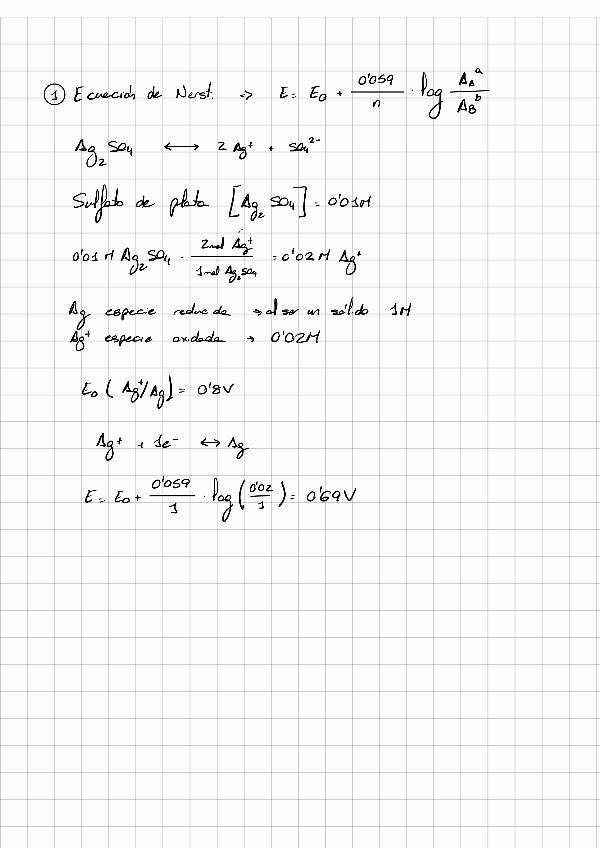 ① Ecuación de Nerst. => E = E₀ + 0'059/n · log A_A^a / A_B^b
Ag₂SO₄ ⟷ 2 Ag⁺ + SO₄²⁻
Sulfato de plata [Ag₂SO₄] = 0'01M
0'01 M Ag₂SO₄ · 2 mol Ag⁺ / 1 mol Ag₂SO₄ = 0'02 M Ag⁺
Ag especie reducida → al ser un sólido 1M
Ag⁺ especie oxidada → 0'02M
E₀ (Ag⁺/Ag) = 0'8V
Ag⁺ + 1e⁻ ⟷ Ag
E = E₀ + 0'059/1 · log (0'02/1) = 0'69V